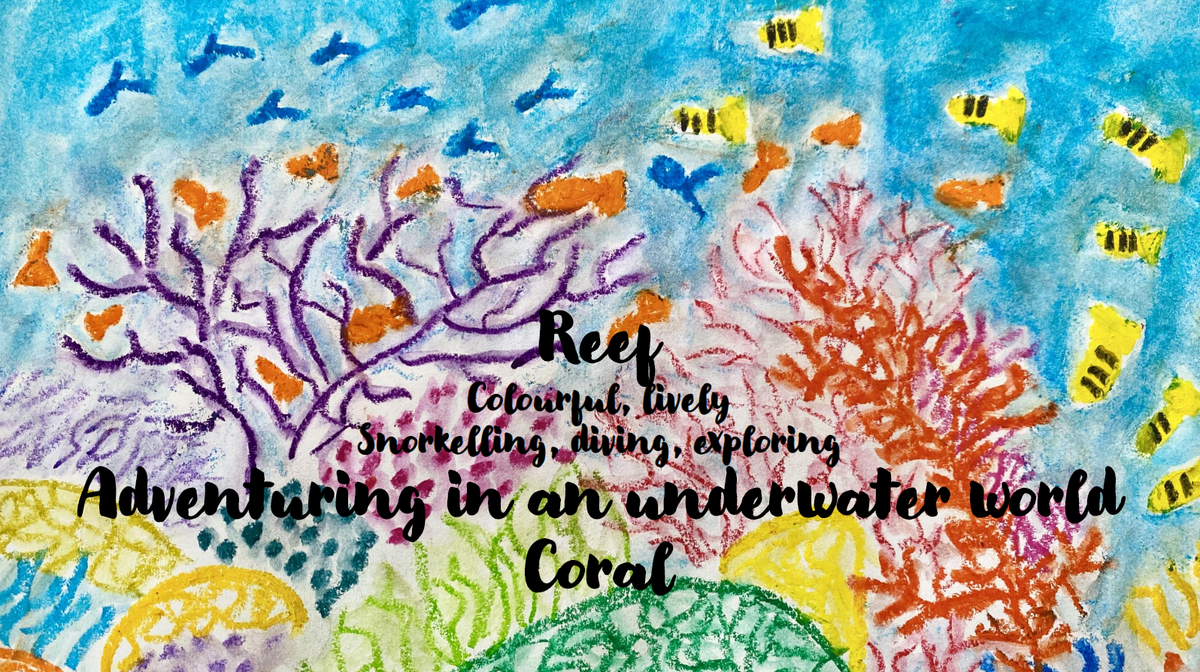 Reef
Colourful, lively
Snorkelling, diving, exploring
Adventuring in an underwater world
Coral